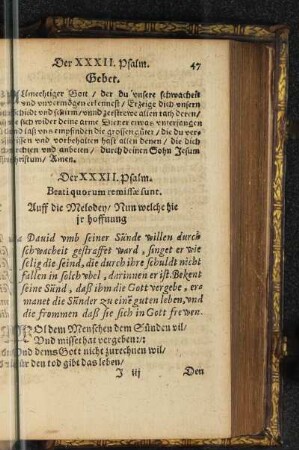 Der XXXII. Psalm. 47
Gebet.
Allmechtiger Gott / der du vnsere schwacheit
vnd vnuermögen erkennest / Erzeige dich vnsern
schiedt vnd schirm / vnnd zerstrewe allen rath deren /
sich wider deine arme Diener etwas vnterfangen
vnd laß vns empfinden die grossen güter / die du ver-
vnd vorbehalten hast allen denen / die dich
vnd anbeten / durch deinen Sohn Jesum
Christum / Amen.
Der XXXII. Psalm.
Beati quorum remissæ sunt.
Auff die Melodey / Nun welche hie
jr hoffnung
Dauid vmb seiner Sünde willen durch
schwacheit gestraffet ward, singet er wie
selig die seind, die durch ihre schuldt nicht
fallen in solch vbel, darinnen er ist. Bekent
seine Sünd, daß ihm die Gott vergebe, er
manet die Sünder zu eine guten leben, vnd
die frommen daß sie sich in Gott frewen.
WOl dem Menschen dem Sünden vil /
Vnd missethat vergeben / :
Vnd dems Gott nicht zurechnen wil /
für den tod gibt das leben /
J iij Den